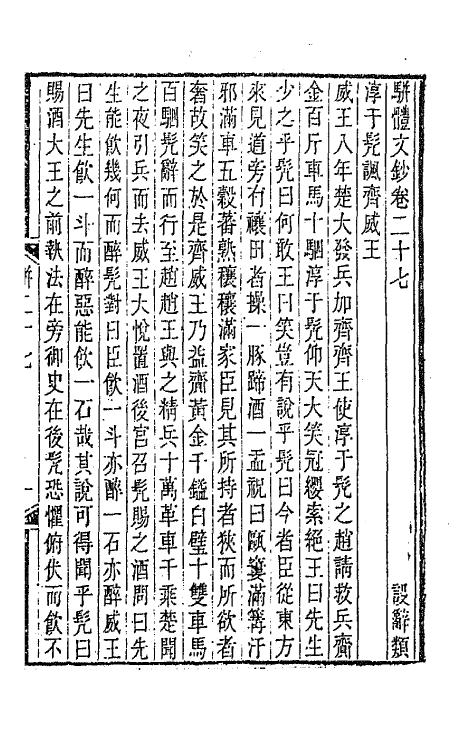 駢體文鈔卷二十七　設辭類
淳于髡諷齊威王
威王八年楚大發兵加齊齊王使淳于髡之趙請救兵齎
金百斤車馬十駟淳于髡仰天大笑冠纓索絕王曰先生
少之乎髡曰何敢王曰笑豈有說乎髡曰今者臣從東方
來見道旁有禳田者操一豚蹄酒一盂祝曰甌窶滿篝汙
邪滿車五穀蕃熟穰穰滿家臣見其所持者狹而所欲者
奢故笑之於是齊威王乃益齎黃金千鎰白璧十雙車馬
百駟髡辭而行至趙趙王與之精兵十萬革車千乘楚聞
之夜引兵而去威王大悅置酒後宮召髡賜之酒問曰先
生能飲幾何而醉髡對曰臣飲一斗亦醉一石亦醉威王
曰先生飲一斗而醉惡能飲一石哉其說可得聞乎髡曰
賜酒大王之前執法在旁御史在後髡恐懼俯伏而飲不
駢二十七　一